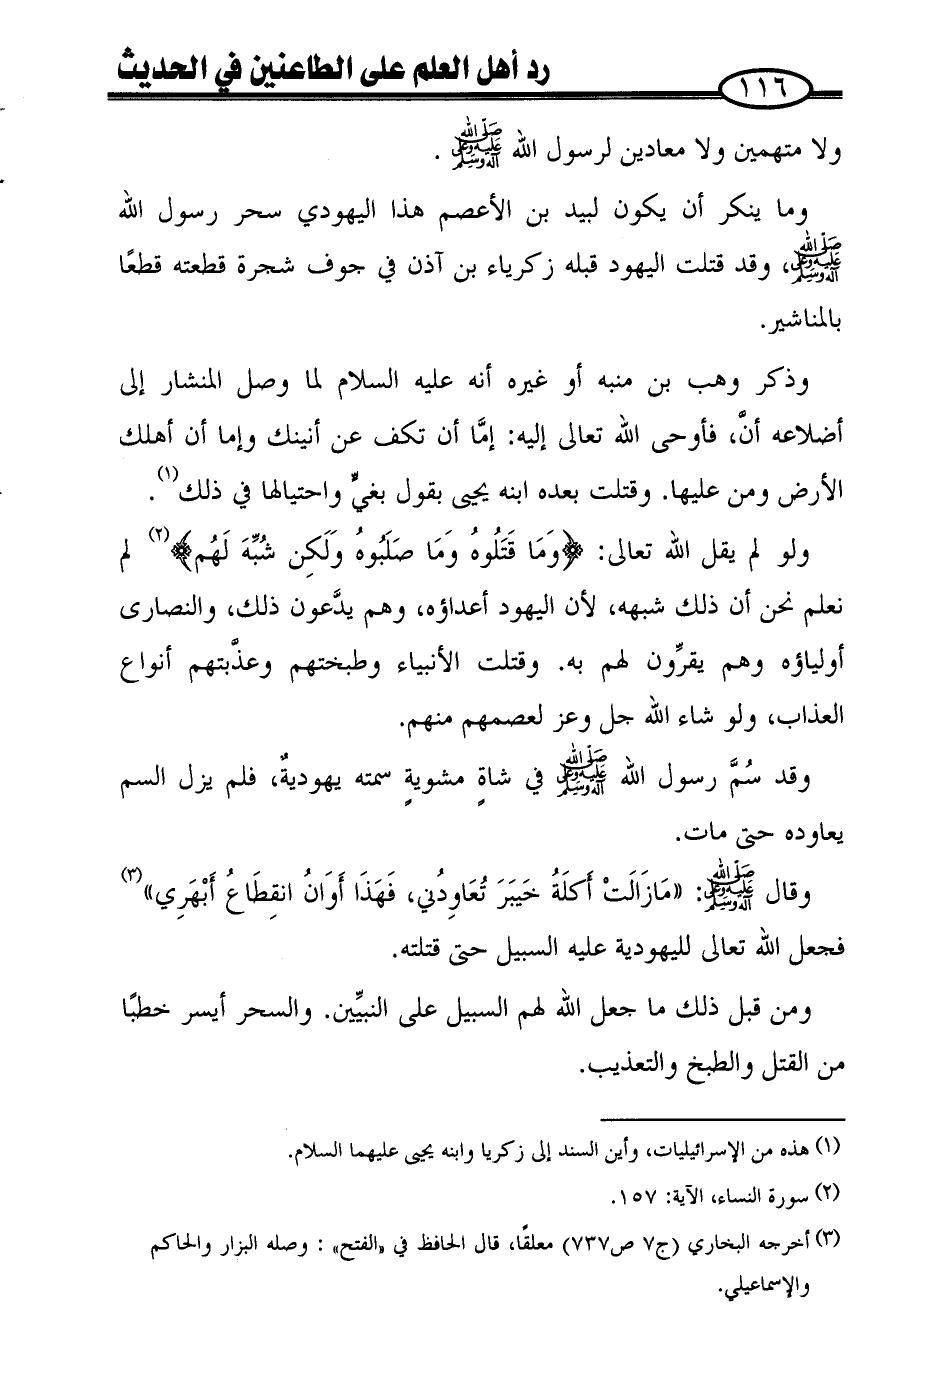 رد أهل العلم على الطاعنين في الحديث
١١٦
ولا متهمين ولا معادين لرسول الله ﷺ .
وما ينكر أن يكون لبيد بن الأعصم هذا اليهودي سحر رسول الله
ﷺ، وقد قتلت اليهود قبله زكرياء بن آذن في جوف شجرة قطعته قطعًا
بالمناشير.
وذكر وهب بن منبه أو غيره أنه عليه السلام لما وصل المنشار إلى
أضلاعه أنَّ، فأوحى الله تعالى إليه: إمَّا أن تكف عن أنينك وإما أن أهلك
الأرض ومن عليها. وقتلت بعده ابنه يحيى بقول بغيٍّ واحتيالها في ذلك(١).
ولو لم يقل الله تعالى: ﴿وَمَا قَتَلُوهُ وَمَا صَلَبُوهُ وَلَكِن شُبِّهَ لَهُم﴾(٢) لم
نعلم نحن أن ذلك شبهه، لأن اليهود أعداؤه، وهم يدَّعون ذلك، والنصارى
أولياؤه وهم يقرِّون لهم به. وقتلت الأنبياء وطبختهم وعذَّبتهم أنواع
العذاب، ولو شاء الله جل وعز لعصمهم منهم.
وقد سُمَّ رسول الله ﷺ في شاةٍ مشويةٍ سمته يهوديةٌ، فلم يزل السم
يعاوده حتى مات.
وقال ﷺ: «مَازَالَتْ أَكلَةُ خَيبَرَ تُعَاوِدُني، فَهَذَا أَوَانُ انقِطَاعُ أَبْهَرِي»(٣)
فجعل الله تعالى لليهودية عليه السبيل حتى قتلته.
ومن قبل ذلك ما جعل الله لهم السبيل على النبيِّين. والسحر أيسر خطبًا
من القتل والطبخ والتعذيب.
(١) هذه من الإسرائيليات، وأين السند إلى زكريا وابنه يحيى عليهما السلام.
(٢) سورة النساء، الآية: ١٥٧.
(٣) أخرجه البخاري (ج٧ ص٧٣٧) معلقًا، قال الحافظ في «الفتح» : وصله البزار والحاكم
والإسماعيلي.